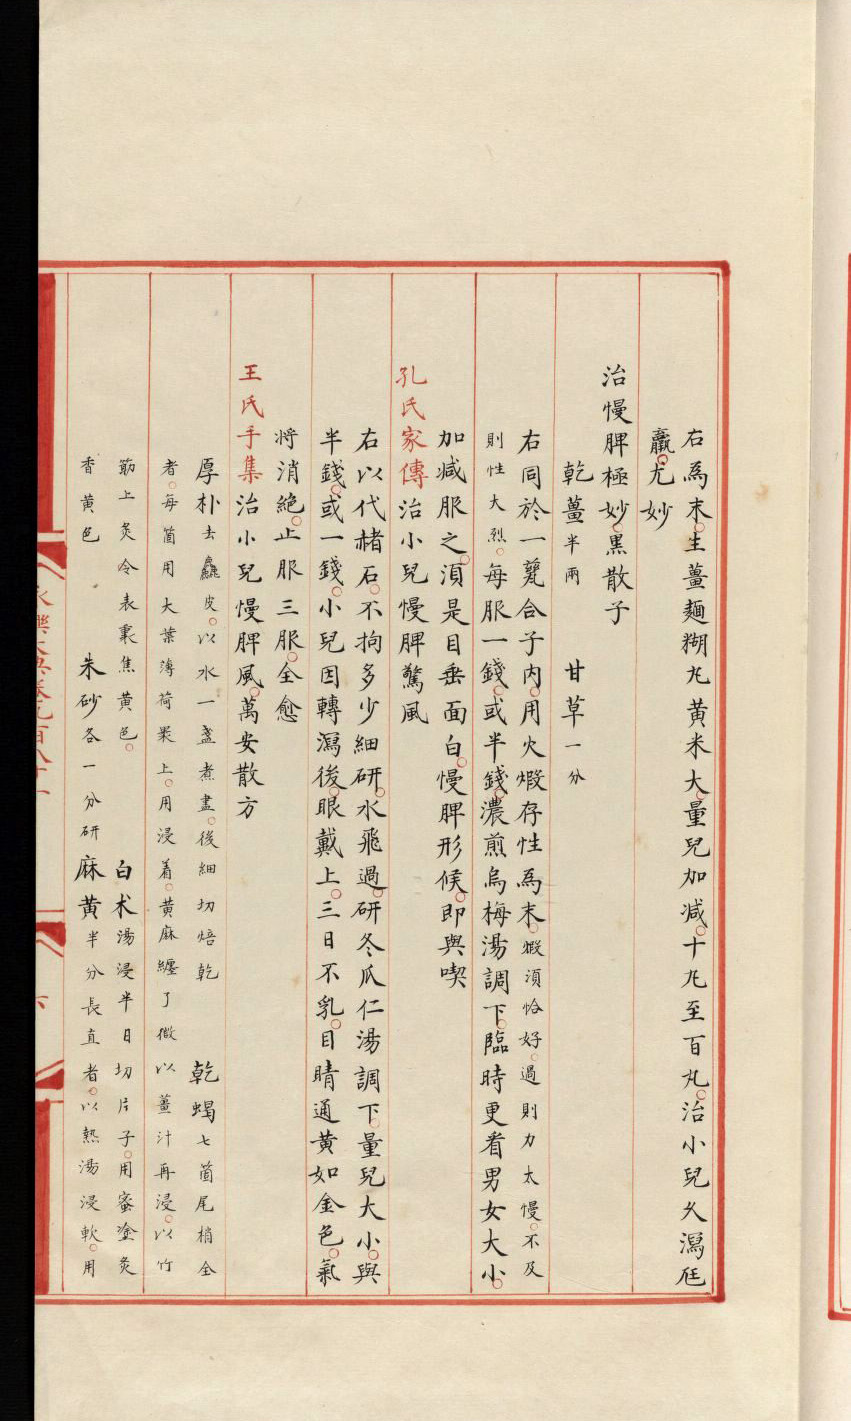 右為末。生薑麵糊丸黄米大。量兒加減。十丸至百丸。治小兒久瀉尫
羸。尤妙
治慢脾極妙。黑散子
乾薑半兩 甘草一分
右同於一甆合子内。用火煅存性為末。煅須恰好。過則力太慢。不及
則性大烈。每服一錢。或半錢。濃煎烏梅湯調下。臨時更看男女大小。
加減服之。湏是目垂面白。慢脾形候。即與喫
孔氏家傳治小兒慢脾驚風
右以代赭石。不拘多少細研。水飛過。研冬瓜仁湯調下。量兒大小。與
半錢。或一錢。小兒因轉瀉後。眼戴上。三日不乳。目睛通黄如金色。氣
将消絶。止服三服。全愈
王氏手集治小兒慢脾風。萬安散方
厚朴去麤皮。以水一盞煮盡。後細切焙乾 乾蝎七箇尾梢全
者。每箇用大葉薄荷裹上。用浸着。黄麻纏了微以薑汁再浸。以竹
筯上炙令表裏焦黄色。 白术湯浸半日切片子。用蜜塗炙
香黄色 朱砂各一分研 麻黄半分長直者。以熱湯浸軟。用